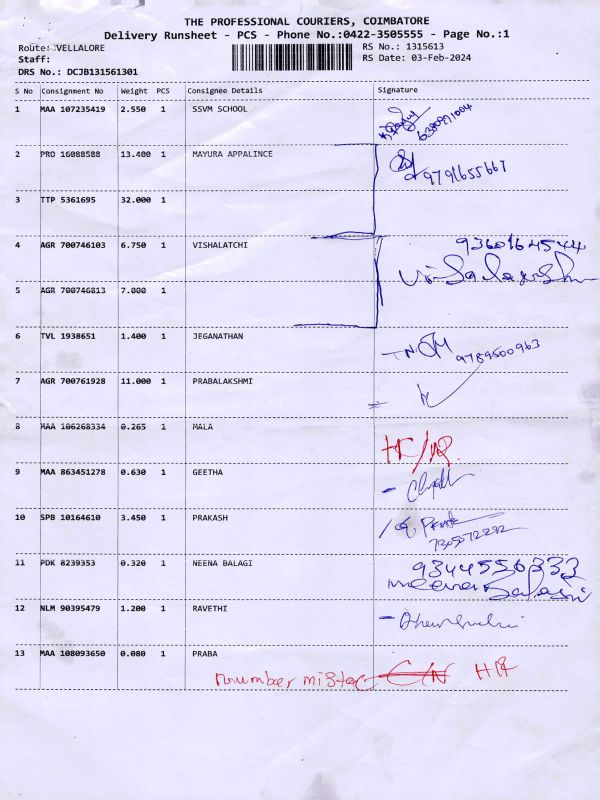 THE PROFESSIONAL COURIERS, COIMBATORE
Delivery Runsheet - PCS - Phone No.:0422-3505555 - Page No.:1
Route: VELLALORE
RS No.: 1315613
Staff:
RS Date: 03-Feb-2024
DRS No.: DCJB131561301
S No Consignment No Weight PCS Consignee Details Signature
1 MAA 107235419 2.550 1 SSVM SCHOOL
2 PRO 16088588 13.400 1 MAYURA APPALINCE
9791655667
3 TTP 5361695 32.000 1
4 AGR 700746103 6.750 1 VISHALATCHI
9360164544
5 AGR 700746813 7.000 1
6 TVL 1938651 1.400 1 JEGANATHAN
9789500963
7 AGR 700761928 11.000 1 PRABALAKSHMI
8 MAA 106268334 0.265 1 MALA
9 MAA 863451278 0.630 1 GEETHA
10 SPB 10164610 3.450 1 PRAKASH
11 PDK 8239353 0.320 1 NEENA BALAGI
9344556333
12 NLM 90395479 1.200 1 RAVETHI
13 MAA 108093650 0.080 1 PRABA
number